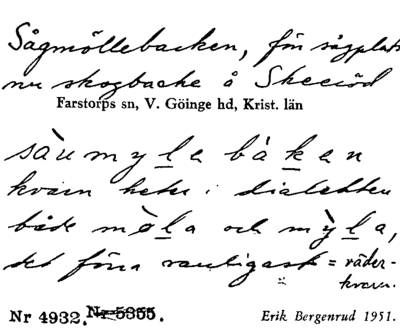 Sågmöllebacken, f.ö. sågplats
nu skogbacke å Skeeröd
Farstorps sn, V. Göinge hd, Krist. län
såumylebákan
kvarn heter i dialekten
både möla och myla,
det förra vanligast = väder-
kvarn.
Nr 4932. Nr 5355. Erik Bergenrud 1951.